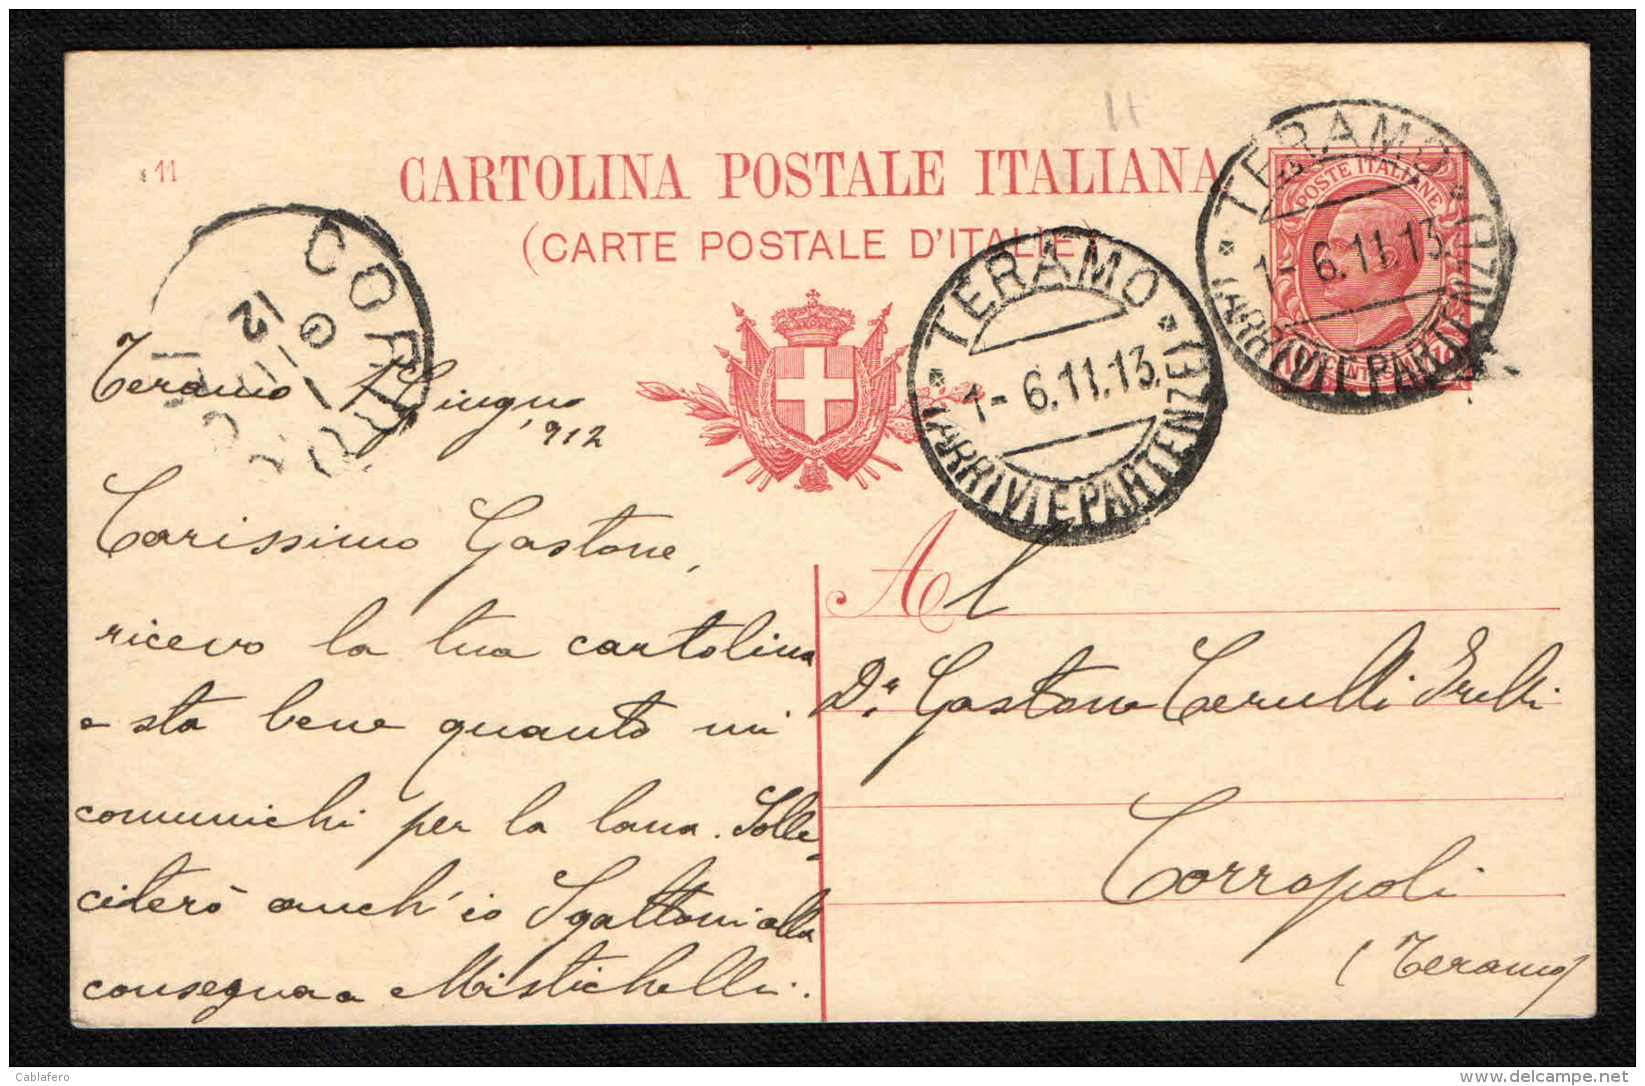 11
CARTOLINA POSTALE ITALIANA
(CARTE POSTALE D'ITALIE)
TERAMO
1-6.11.13
(ARRIVI E PARTENZE)
POSTE ITALIANE
CENTES
TERAMO
1-6.11.13
(ARRIVI E PARTENZE)
COR
12
Teramo 1 Giugno
912
Carissimo Gastone,
ricevo la tua cartolina
e sta bene quanto mi
comunichi per la lana. Solle-
citerò anch'io Sgattoni alla
consegna a Mistichelli.
Al
Dr. Gastone Cerulli Irelli
Corropoli
(Teramo)
Cablafero
delcampe.net